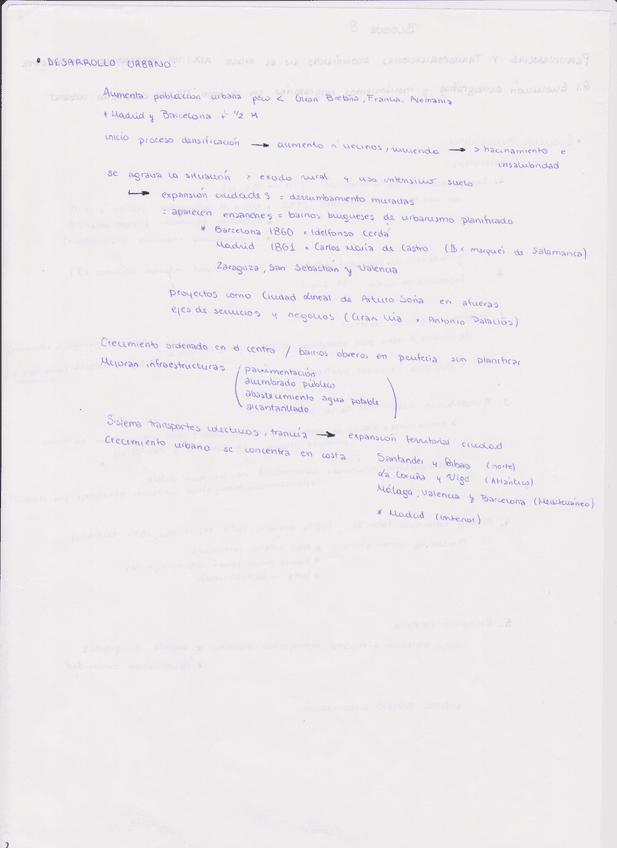 * DESARROLLO URBANO:
Aumenta población urbana pero < Gran Bretaña, Francia, Alemania
* Madrid y Barcelona + 1/2 M
inicio proceso densificación → aumento nº vecinos/vivienda → > hacinamiento e
insalubridad
se agrava la situación = exodo rural y uso intensivo suelo
→ expansión ciudades = derrumbamiento murallas
: aparecen ensanches = barrios burgueses de urbanismo planificado
* Barcelona 1860 = Ildelfonso Cerdá
Madrid 1861 = Carlos María de Castro (B: marqués de Salamanca)
Zaragoza, San Sebastián y Valencia
proyectos como Ciudad Lineal de Arturo Soria en afueras
ejes de servicios y negocios (Gran Vía = Antonio Palacios)
Crecimiento ordenado en el centro / barrios obreros en periferia sin planificar
Mejoran infraestructuras (pavimentación
alumbrado público
abastecimiento agua potable
alcantarillado)
Sistema transportes colectivos, tranvía → expansión territorial ciudad
Crecimiento urbano se concentra en costa Santander y Bilbao (norte)
La Coruña y Vigo (Atlántico)
Málaga, Valencia y Barcelona (Mediterráneo)
* Madrid (interior)